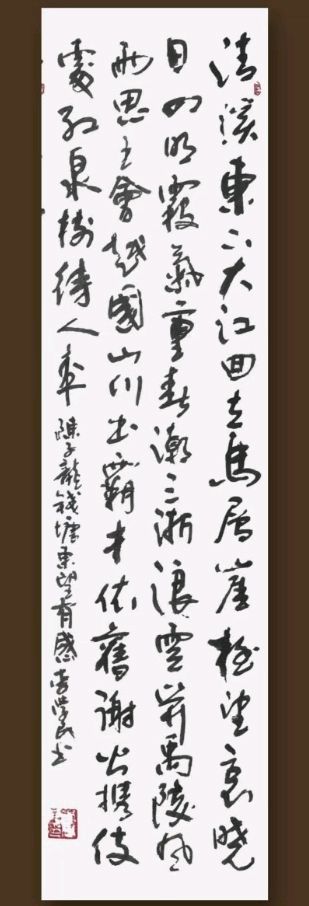 清溪東下大江回立馬層崖極望哀曉
日四明霞氣重春潮三浙浪雲開禹陵風
雨思王會越國山川出霸才依舊謝公携伎
處紅泉樹待人來 陳子龍錢塘東望有感 書